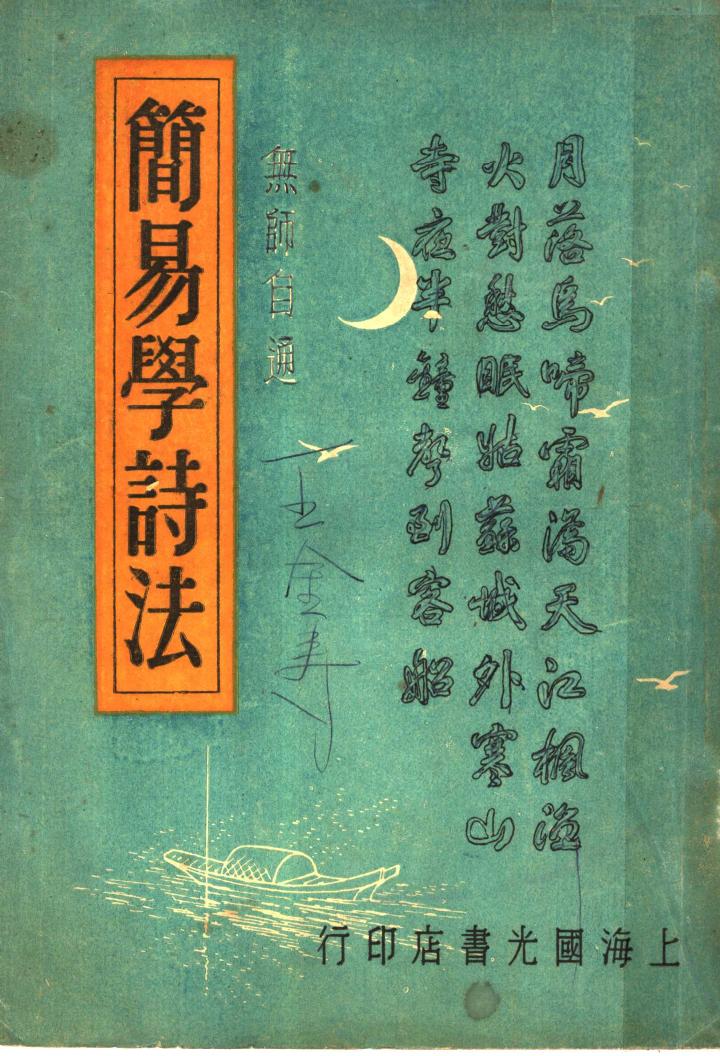 月落烏啼霜滿天江楓漁
火對愁眠姑蘇城外寒山
寺夜半鐘聲到客船
無師自通
王金寿
簡易學詩法
上海國光書店印行